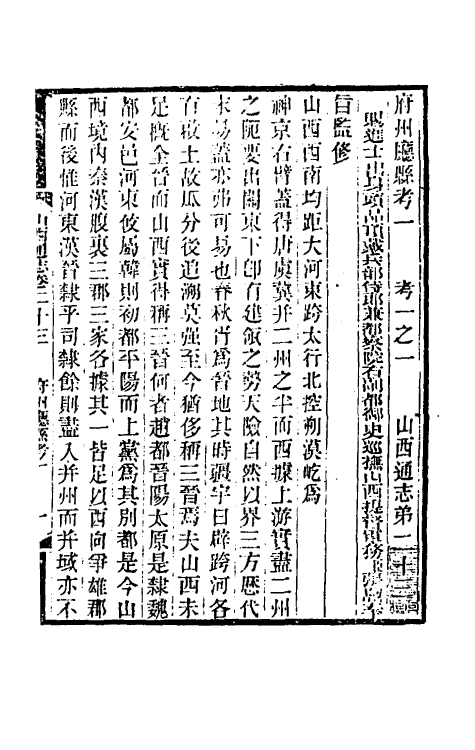 府州廳縣考一　考一之一　山西通志第二十三
賜進士出身頭品頂戴兵部侍郎兼都察院右副都御史巡撫山西提督鹽務
旨監修
山西西南均距大河東跨太行北控朔漠屹爲
神京右臂蓋得唐虞冀并二州之半而西據上游實盡二州
之阨要出關東下卽有建瓴之勢天險自然以界三方歷代
未易蓋亦弗可易也春秋肖爲晉地其時疆宇日辟跨河各
百啟土故瓜分後追溯莫強至今猶侈稱三晉焉夫山西未
足槪全晉而山西實得稱三晉何者趙都晉陽太原是隸魏
都安邑河東攸屬韓則初都平陽而上黨爲其別都是今山
西境內秦漢腹裏三郡三家各據其一皆足以西向爭雄郡
縣而後惟河東漢晉隸乎司隸餘則盡入并州而并域亦不
山西通志卷二十三　府州廳縣考一　一